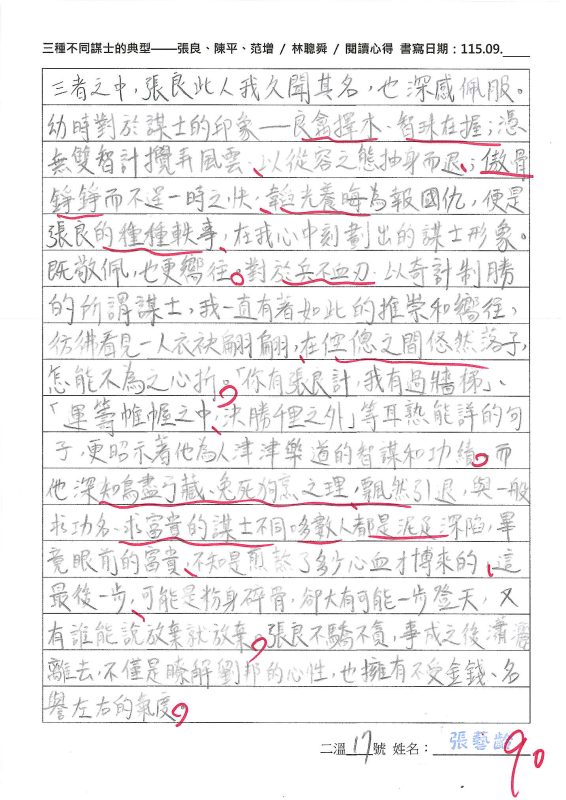 三種不同謀士的典型——張良、陳平、范增 / 林聰舜 / 閱讀心得 書寫日期：115.09.____
三者之中，張良此人我久聞其名，也深感佩服。
幼時對於謀士的印象──良禽擇木、智珠在握；憑
無雙智計攪弄風雲、以從容之態抽身而退；傲骨
錚錚而不逞一時之快、韜光養晦為報國仇，便是
張良的種種軼事，在我心中刻劃出的謀士形象。
既敬佩，也更嚮往。對於兵不血刃、以奇計制勝
的所謂謀士，我一直有著如此的推崇和嚮往，
彷彿看見一人衣袂翩翩，在倥傯之間悠然落子，
怎能不為之心折。「你有張良計，我有過牆梯」、
「運籌帷幄之中，決勝千里之外」等耳熟能詳的句
子，更昭示著他為人津津樂道的智謀和功績。而
他深知鳥盡弓藏、兔死狗烹之理，飄然引退，與一般
求功名、求富貴的謀士不同。多數人都是泥足深陷，畢
竟眼前的富貴、不知是煎熬了多少心血才博來的，這
最後一步，可能是粉身碎骨，卻大有可能一步登天，又
有誰能說放棄就放棄，張良不驕不貪，事成之後瀟灑
離去，不僅是瞭解劉邦的心性，也擁有不受金錢、名
譽左右的氣度。
二溫 17 號 姓名： 張藝齡
90